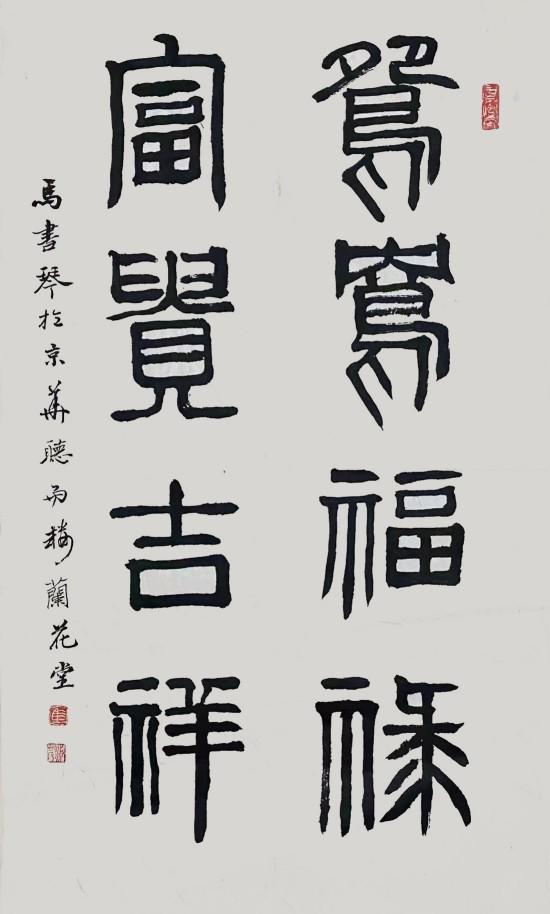 鴛鴦福祿
富貴吉祥
馬書琴於京華聽雨樓蘭花堂